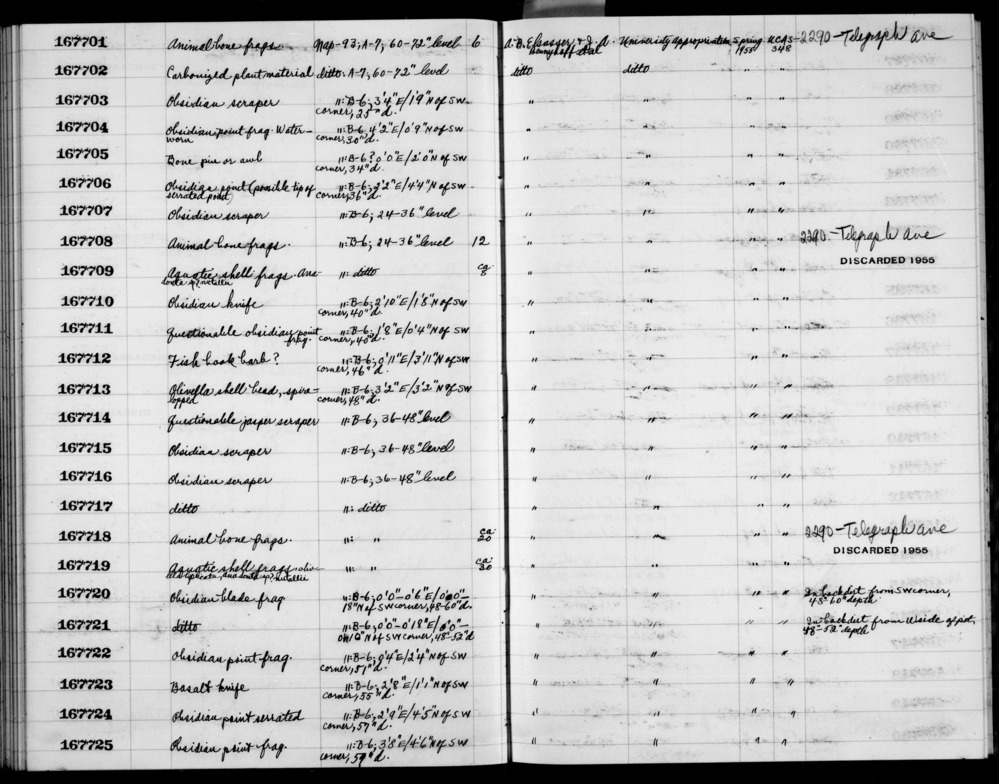 167701 Animal bone frags Nap-93; A-7; 60-72" level 6 A.B. Elsasser & J. A. University appropriation Spring ACAS 2290-Telegraph Ave
Bennyhoff et al 1955 348
167702 Carbonized plant material ditto: A-7; 60-72" level ditto ditto " "
167703 Obsidian scraper ": B-6; 3'4"E/1'9"N of SW " " " "
corner, 25"d.
167704 Obsidian point frag. Water- ": B-6, 4'2"E/0'9"N of SW " " " "
worn corner, 30"d.
167705 Bone pin or awl ": B-6? 0'0"E/2'0"N of SW " " " "
corner, 34"d.
167706 Obsidian point (possible tip of ": B-6; 2'2"E/4'4"N of SW " " " "
serrated point) corner, 36"d.
167707 Obsidian scraper ": B-6; 24-36" level " " " "
167708 Animal bone frags. ": B-6; 24-36" level 12 " " " " 2290-Telegraph Ave
DISCARDED 1955
167709 Aquatic shell frags. Ano- ": ditto ca " " " "
donta sp; nutallii 8
167710 Obsidian knife ": B-6; 2'10"E/1'8"N of SW " " " "
corner, 40"d.
167711 Questionable obsidian point ": B-6; 1'8"E/0'4"N of SW " " " "
frag. corner, 40"d.
167712 Fish hook barb? ": B-6; 0'11"E/3'11"N of SW " " " "
corner, 46"d.
167713 Olivella shell bead, spire- ": B-6; 3'2"E/3'2"N of SW " " " "
lopped corner, 48"d.
167714 Questionable jasper scraper ": B-6; 36-48" level " " " "
167715 Obsidian scraper ": B-6; 36-48" level " " " "
167716 Obsidian scraper ": B-6; 36-48" level " " " "
167717 ditto ": ditto " " " "
167718 Animal bone frags. ": " ca. 20 " " " " 2290-Telegraph Ave
DISCARDED 1955
167719 Aquatic shell frags: ": " ca. 30 " " " "
nutallii
167720 Obsidian blade frag ": B-6; 0'0"-0'6"E/0'0"- " " " " In backdirt from SW corner,
18"N of SW corner, 48-60"d. 48"-60" depth
167721 ditto ": B-6; 0'0"-0'18"E/0'0"- " " " " In backdirt from W side of pit,
N of SW corner, 48"-52"d 48"-52" depth
167722 Obsidian point frag. ": B-6; 0'4"E/2'4"N of SW " " " "
corner, 51"d.
167723 Basalt knife ": B-6; 2'8"E/1'1"N of SW " " " "
corner, 55"d.
167724 Obsidian point serrated ": B-6; 2'9"E/4'5"N of SW " " " "
corner, 57"d.
167725 Obsidian point frag. ": B-6; 3'8"E/4'6"N of SW " " " "
corner, 59"d.